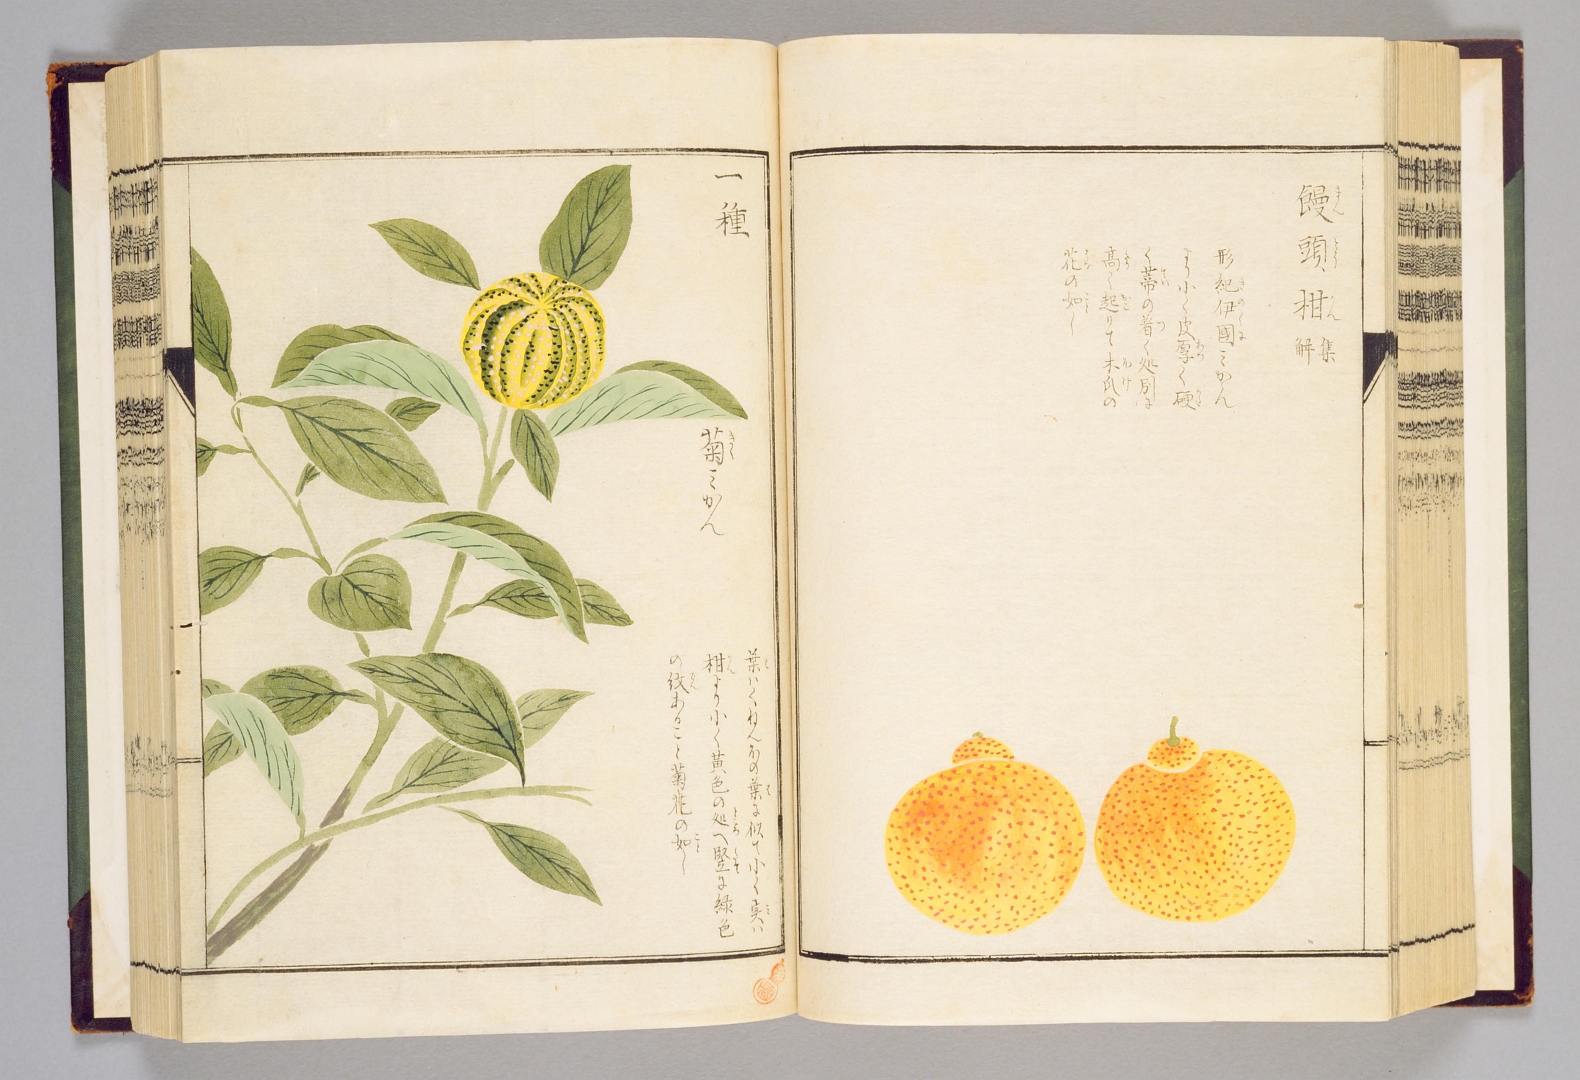 饅頭柑 集解
形紀伊國ミかん
より小く皮厚く硬
く蒂の着く処別に
高く起りて木瓜の
花の如し
一種
菊ミかん
葉ハくねんぼの葉に似て小く実ハ
柑より小く黄色の処へ竪に緑色
の紋あること菊花の如し